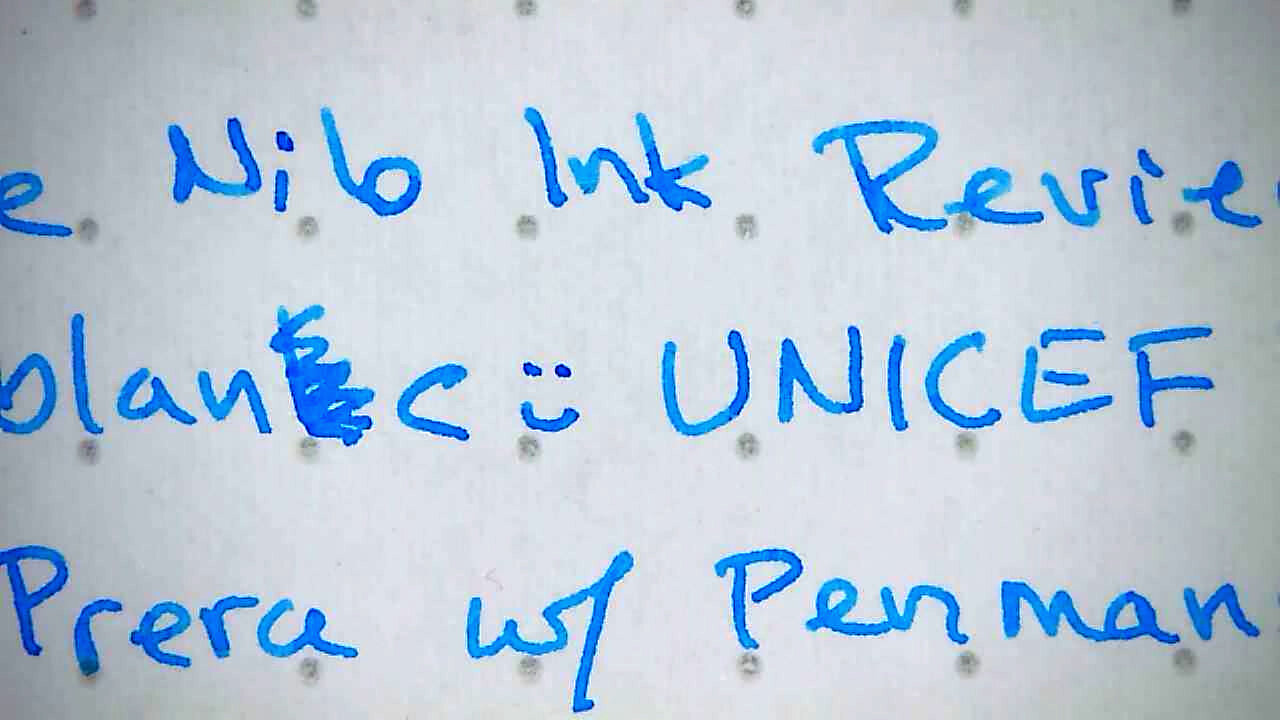 e Nib Ink Revie
blanc : UNICEF
Prera w/ Penman